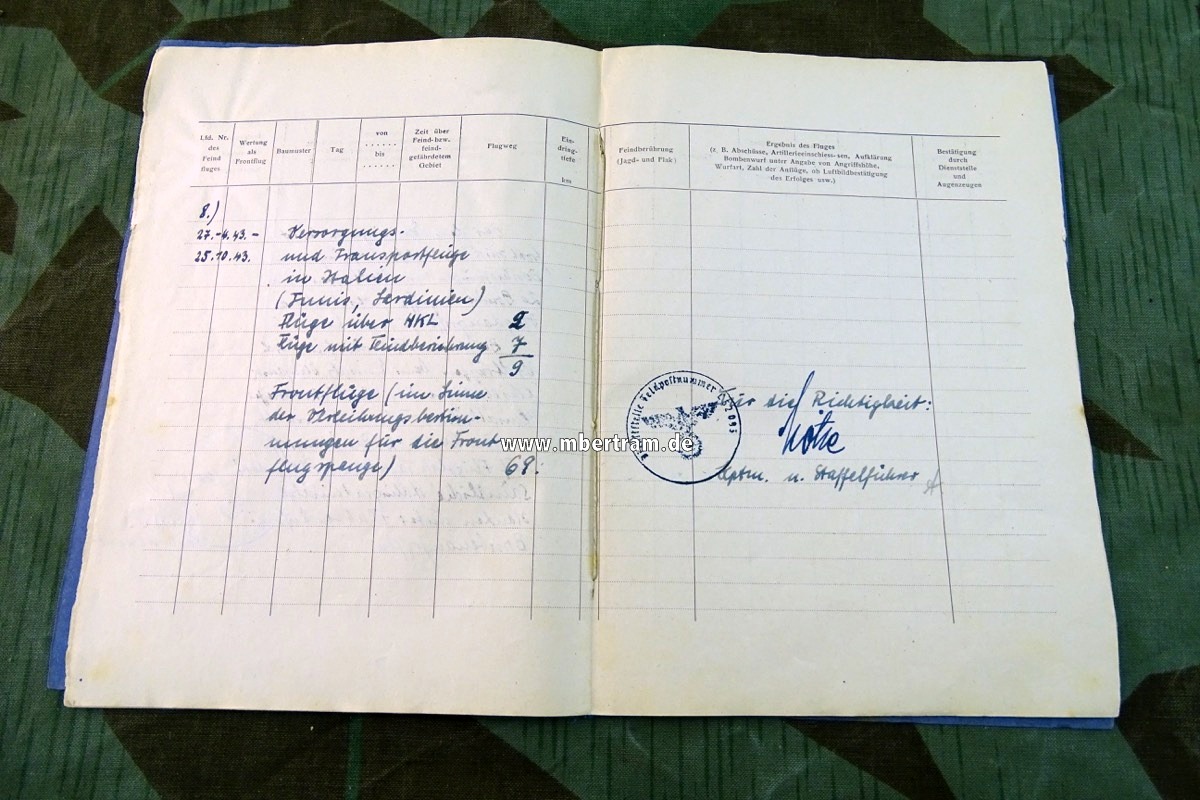 Lfd. Nr.
des
Feind
fluges
Wertung
als
Frontflug
Baumuster
Tag
von
......
bis
......
Zeit über
Feind-bzw.
feind-
gefährdetem
Gebiet
Flugweg
Ein-
dring-
tiefe
km
Feindberührung
(Jagd- und Flak)
Ergebnis des Fluges
(z. B. Abschüsse, Artillerieeinschiess-sen, Aufklärung
Bombenwurf unter Angabe von Angriffshöhe,
Wurfart, Zahl der Auflüge, ob Luftbildbestätigung
des Erfolges usw.)
Bestätigung
durch
Dienststelle
und
Augenzeugen
8.)
27.-4.43.- Versorgungs-
25.10.43. und Transportflüge
in Italien
(Tunis, Sardinien)
Flüge über HKL 2
Flüge mit Feindberührung 7
9
Frontflüge (im Sinne
der Verleihungsbestim-
mungen für die Front-
flugspange) 68.
Feldpostnummer
Für die Richtigkeit:
Hptm. u. Staffelführer
www.mbertram.de